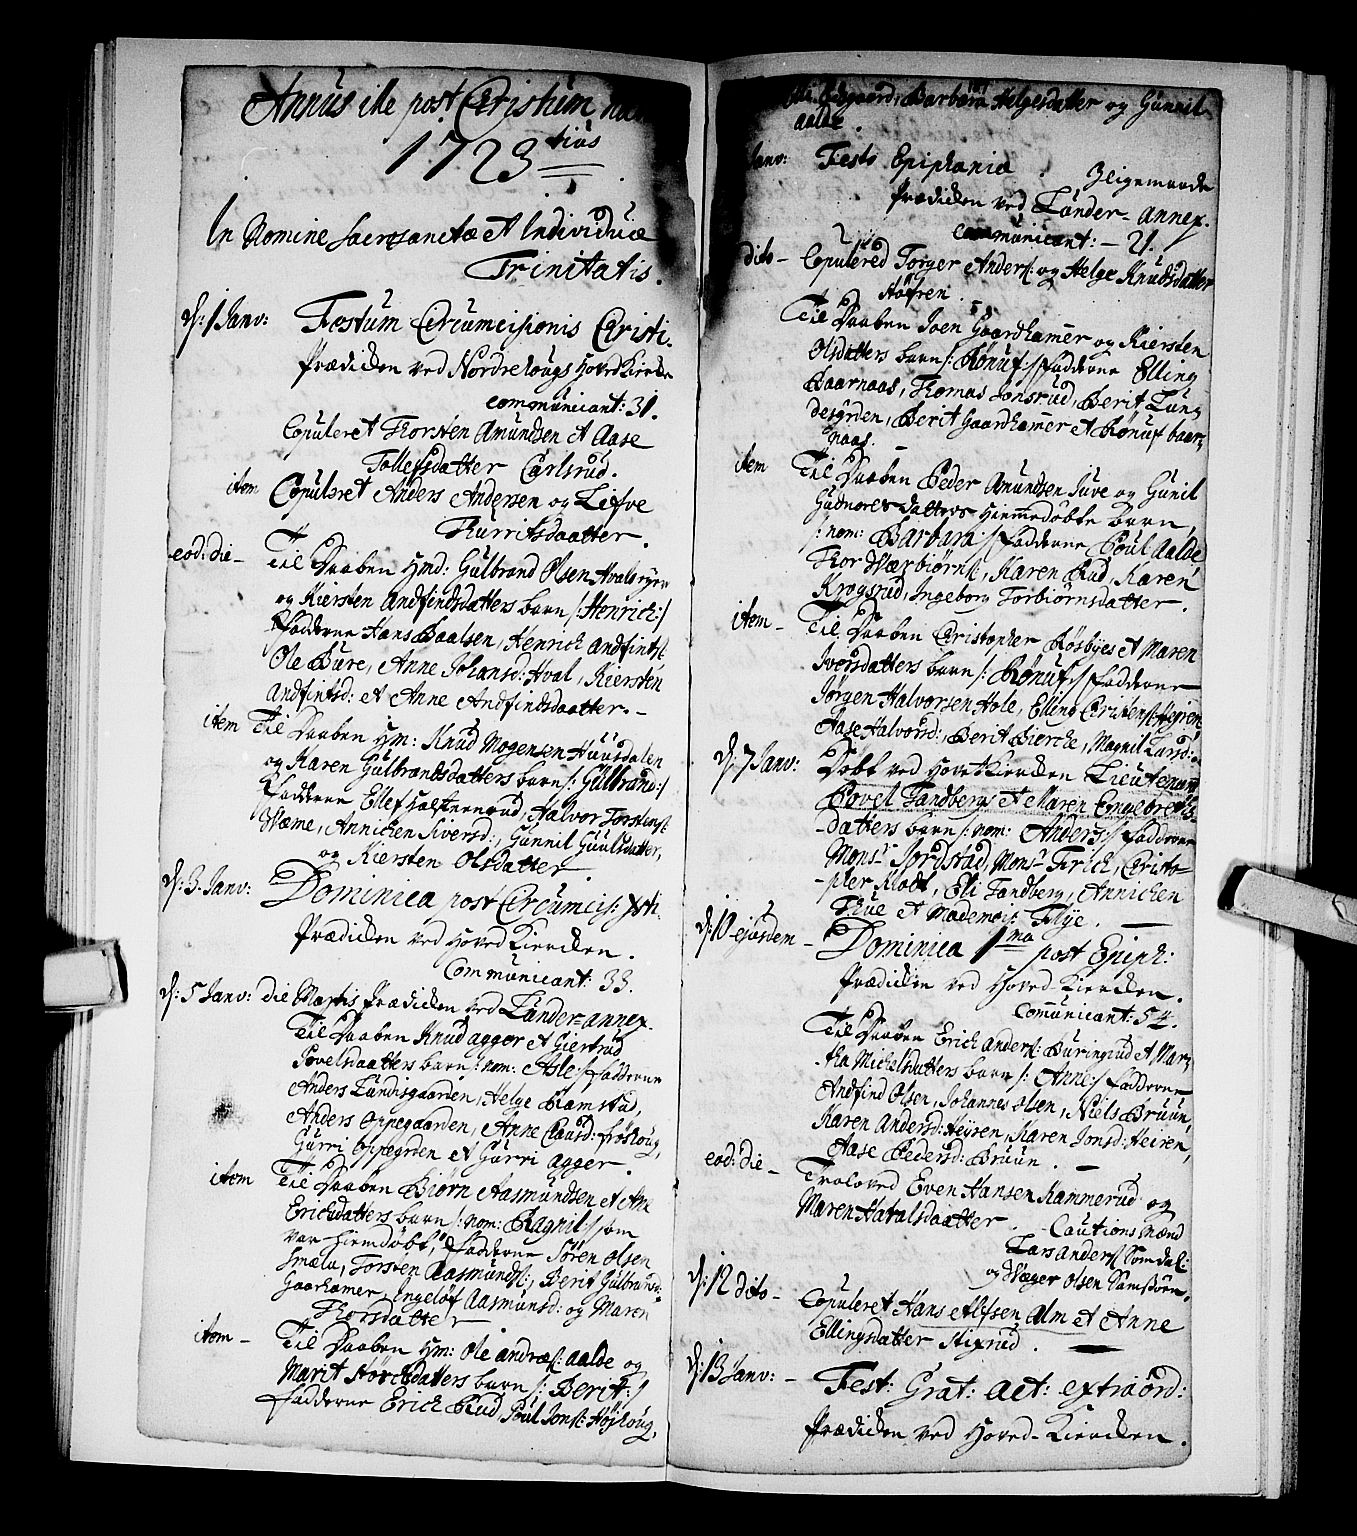 Annus ille post Christum
1723 tius
In Nomine Sacrosanctæ et Individuæ
Trinitatis.
d: 1 Janv: Festum Circumcisionis Christi.
Prædichen ved Nordrelougs Hoved Kierche
communicant: 31.
Copuleret Thorsten Amundsen et Aase
Tollefsdatter Carlsrud.
item Copuleret Anders Andersen og Lifve
Thurrisdaatter.
eod: die – Til Daaben hmd: Gulbrand Olsen Hvals
og Kiersten Andfindsdatters barn /: Henrich :/
Fadderne Hans Paalsen, Henrich Andfints:
Ole Bure, Anne Johansd: Hval, Kiersten
Andfintsd: et Anne Andfindsdaatter. –
item Til Daaben hm: Knud Mogensen Huusdalen
og Karen Gulbrandsdatters barn /: Gulbrand :/
Fadderne Ellef, Halvor Torstens:
Wæme, Annichen Siversd:, Gunnil Guulsdatter,
og Kiersten Olsdatter.
d: 3. Janv: Dominica post Circumcis: Xsti.
Prædichen ved Hoved Kierchen.
Communicant: 33.
d: 5 Janv: die Martis Prædichen ved Lander-annex.
Til Daaben Knud Agger et Giertrud
Povelsdaatters barn /: nom: Asle :/ Fadderne
Anders Landsgaarden, Helge Ramstud,
Anders Oppegaarden, Anne Clausd:
Gurri Oppegrden et Gurri Agger.
item Til Daaben Biørn Aasmundsen et Ane
Erichsdatters barn /: nom: Ragnil :/ som
var hiemdøbt, Fadderne Søren Olsen
Smælu, Torsten Aasmunds:, Berit Gulbrands:
Gaarhamer, Ingeløf Aasmunsd: og Maren
Thorsdatter
item – Til Daaben hm: Ole Andræs: Aalde og
Marit datters barn /: Berit :/
Fadderne Erich Rud, Poul Jons: Højhoug,
Barbara Helgesdatter og Gunnil
Aalde.
Janv: Festo Epiphaniæ. Ligemaade
Prædichen ved Lander-annex.
communicant: – 21.
dito – Copulered Torger Anders: og Helge Knudsdatter
Høfren.
Til Daaben Joen Gaardhammer og Kiersten
Olsdatters barn /: Rønuf :/ Fadderne Elling
Baarnaas, Thomas Jonsrud, Berit Lun
desgrden, Berit Gaardhammer et Rønuf Baar
naas.
item Til Daaben Peder Amundsen Juve og Gunil
Gudmorsdatters Hiemmedøbte Barn,
/: nom: Barbara :/ Fadderne Poul Aalde
Thor Wærbiørns:, Karen Rud, Karen
Krogsrud, Ingeborg Torbiørnsdatter.
item – Til Daaben Christopher Røsbyes et Maren
Iversdatters barn /: Rønuf :/ Fadderne
Jørgen Halvorsen Hole, Elling Christens: Heiren
Aase Halvorsd:, Berit Bierche, Magnil Larsd:
d: 7 Janv: Døbt ved Hoved Kierchen Lieutenant
Povel Sandberg et Maren Engebrets
datters barn /: nom: Anders :/ Fadderne
Monsr Jordstad, Monsr Frich, Christo-
pher Klodt, Eli Sandberg, Annichen
Thue et Mademois: Thye.
d: 10 ejusdem – Dominica 1ma post Epiph:
Prædichen ved Hoved-Kierchen.
Communicant: 54.
Til Daaben Erich Anders: Buringrud et Mar
tha Michelsdatters barn /: Anne :/ Fadderne
Andfind Olsen, Johannes Olsen, Niels Bruun,
Karen Andersd: Heyren, Karen Jonsd: Heiren,
Aase Pedersd: Bruun.
eod: die – Troloved Even Hansen Kammerud og
Maren Havalsdaatter. Cautions Mænd
Lars Anders: Somdal:
og Wæger Olsen Samsiøen.
d: 12 dito – Copuleret Hans Alfsen Alm et Anne
Ellingsdatter Stixrud.
d: 13 Janv: – Fest: Grat: act: extraord:
Prædichen ved Hoved-Kierchen.